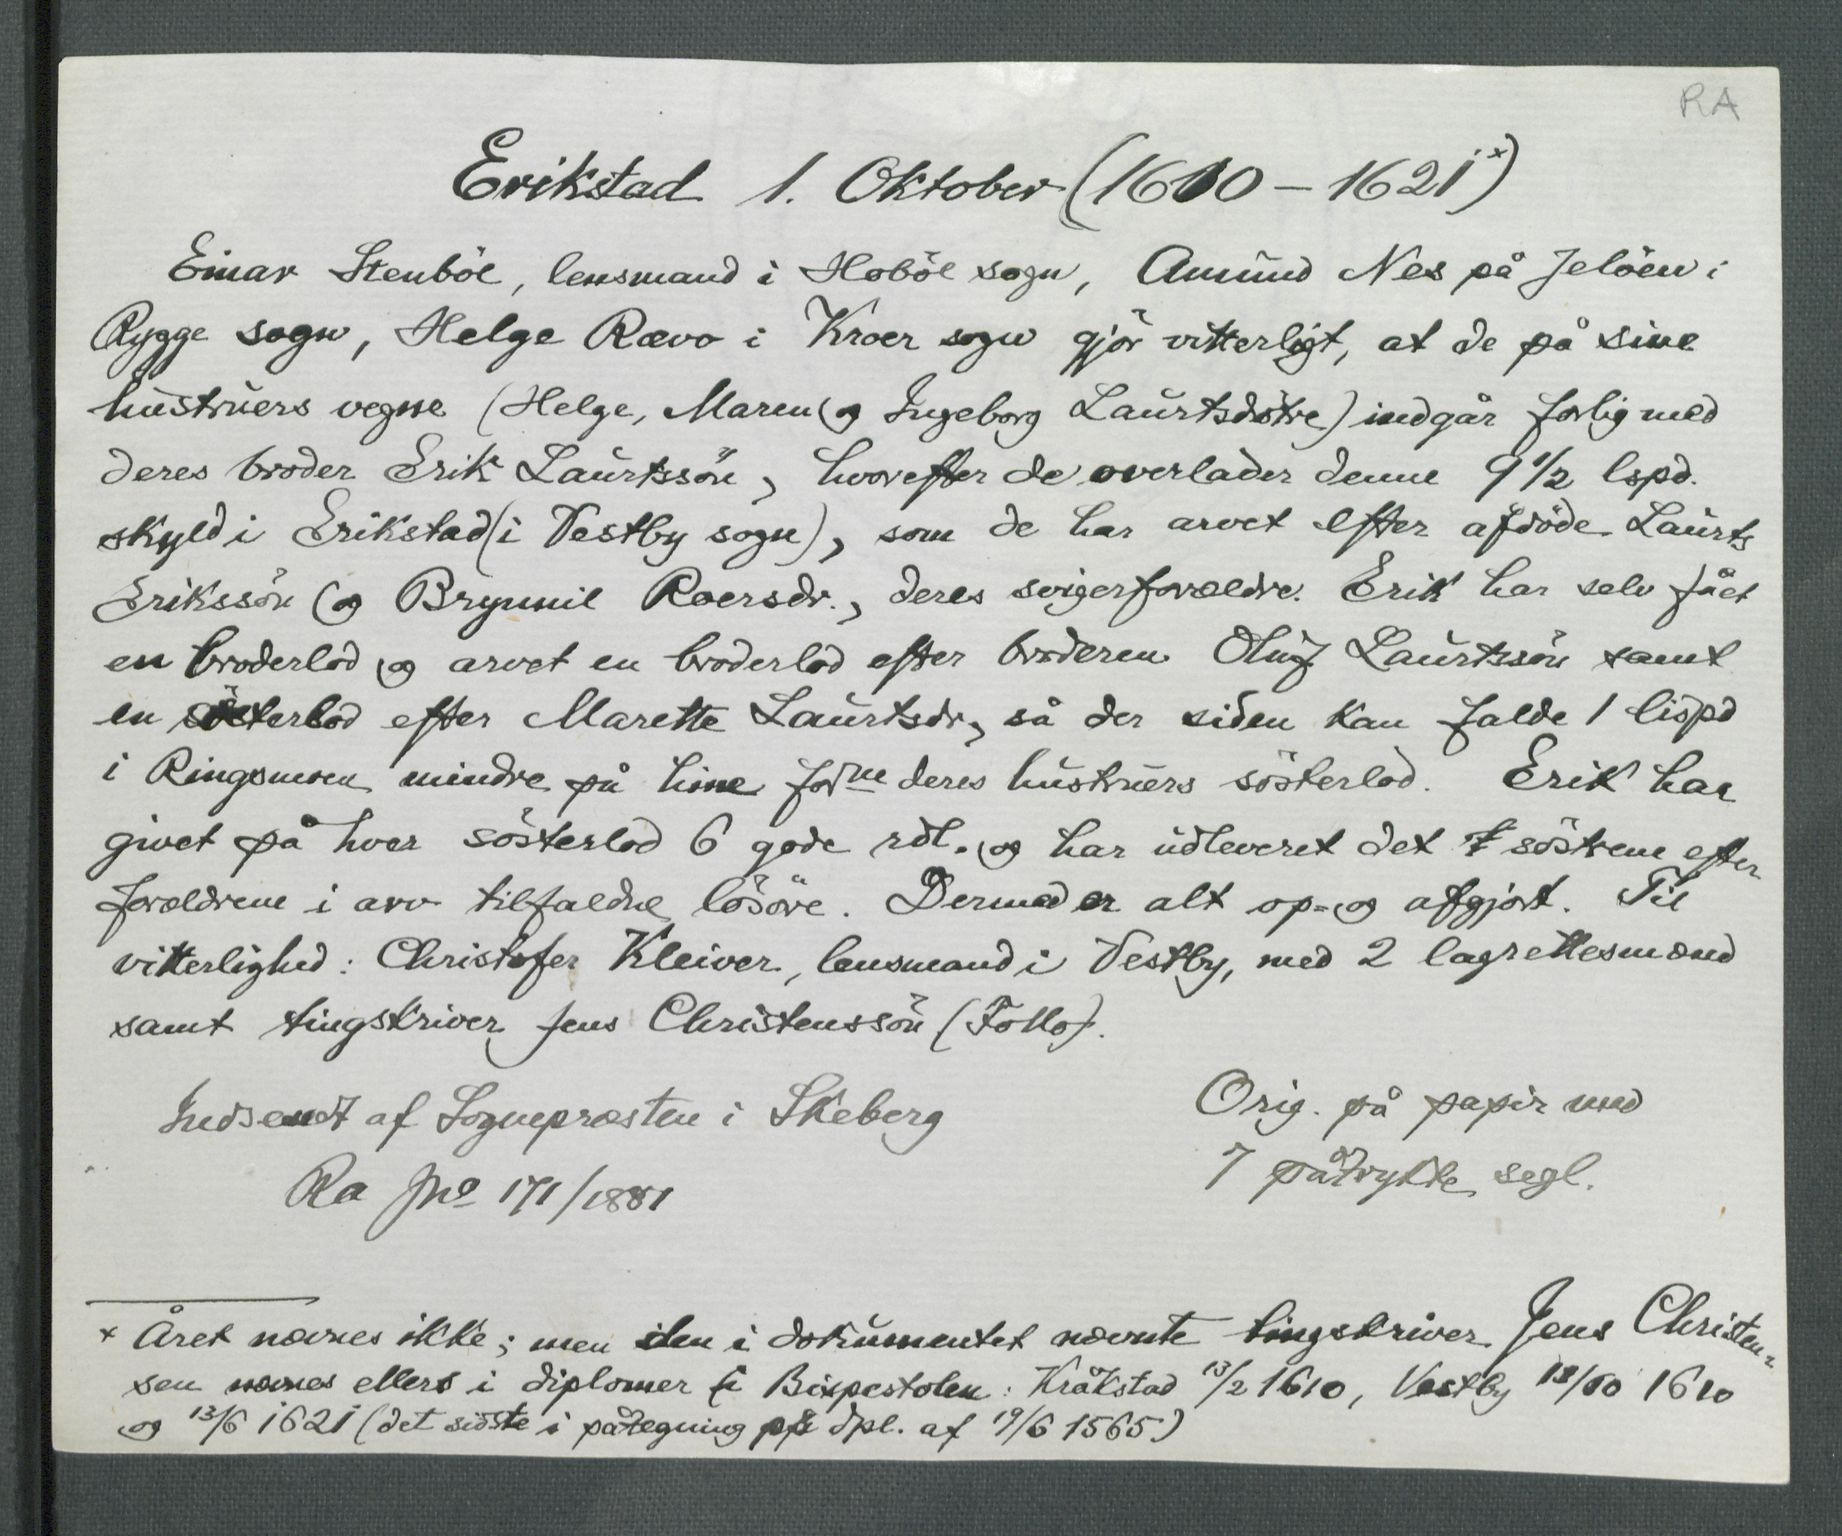 RA
Erikstad 1. Oktober (1610 – 1621 ×)
Einar Stenböl, lensmand i Hoböl sogn, Amund Nes på Jelöen i
Rygge sogn, Helge Rævo i Kroer sogn gjör vitterligt, at de på sine
hustruers vegne (Helge, Maren og Ingeborg Laurtsdötre) indgår forlig med
deres broder Erik Laurtssön, hvorefter de overlader denne 9 1/2 lspd.
skyld i Erikstad (i Vestby sogn), som de har arvet efter afdöde Laurts
Erikssön og Brynnil Roersdr., deres svigerforældre. Erik har selv fået
en broderlod og arvet en broderlod efter broderen Oluf Laurtssön samt
en sösterlod efter Marette Laurtsdr, så der siden kan falde 1 lispd
i Ringsmoen mindre på hine forne deres hustruers sösterlod. Erik har
givet på hver sösterlod 6 gode rdl. og har udleveret det söstrene efter
forældrene i arv tilfaldne lösöre. Dermed er alt op- og afgjort. Til
vitterlighed: Christofer Kleiver, lensmand i Vestby, med 2 lagrettesmænd
samt tingskriver Jens Christenssön (Follo).
Indsendt af Sognepræsten i Skeberg
Ra Jno 171/1881
Orig. på papir med
7 påtrykte segl.
× Året nævnes ikke; men den i dokumentet nævnte tingskriver Jens Christen-
sen nævnes ellers i diplomer i Bispestolen: Kråkstad 13/2 1610, Vestby 18/10 1610
og 13/6 1621 (det sidste i påtegning på dpl. af 19/6 1565)